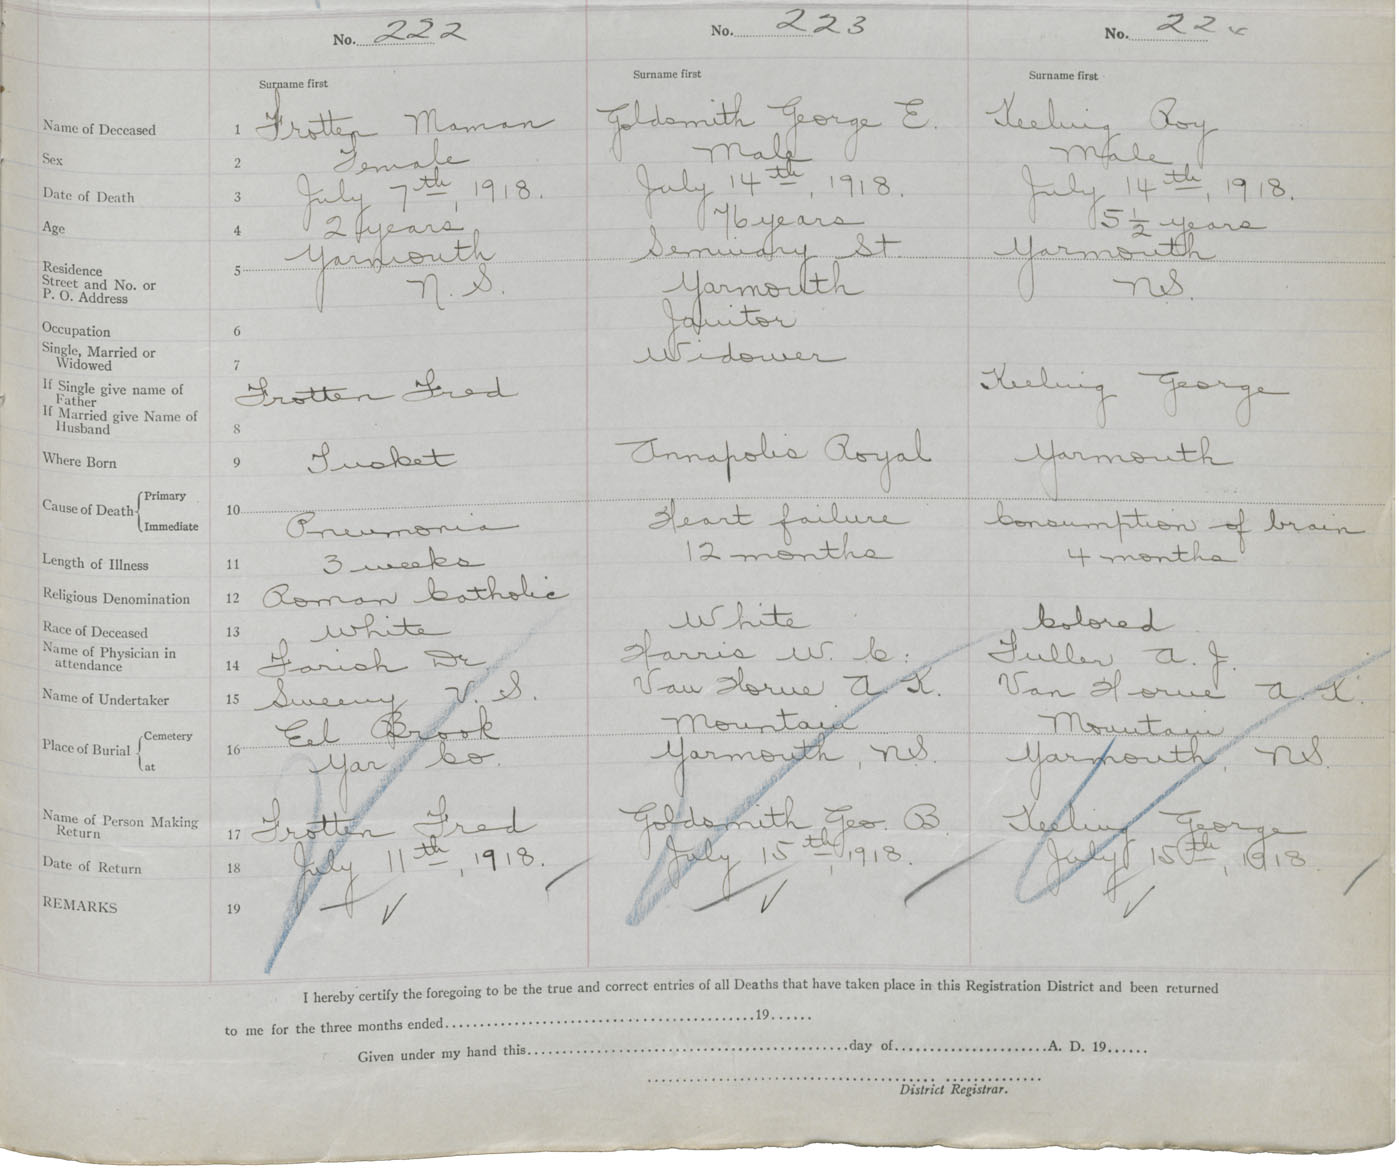 No. 222 No. 223 No. 224
Surname first Surname first Surname first
Name of Deceased 1 Frotten Maman Goldsmith George E. Keeling Roy
Sex 2 Female Male Male
Date of Death 3 July 7th, 1918. July 14th, 1918. July 14th, 1918.
Age 4 2 years 76 years 5 1/2 years
Residence 5 Yarmouth Seminary St. Yarmouth
Street and No. or
P. O. Address N. S. Yarmouth N.S.
Occupation 6 Janitor
Single, Married or
Widowed 7 Widower
If Single give name of
Father Frotten Fred Keeling George
If Married give Name of
Husband 8
Where Born 9 Tusket Annapolis Royal Yarmouth
Cause of Death Primary
10
Immediate Pneumonia Heart failure Consumption of brain
Length of Illness 11 3 weeks 12 months 4 months
Religious Denomination 12 Roman Catholic
Race of Deceased 13 White White Colored
Name of Physician in
attendance 14 Farish Dr Harris W. C. Fuller A. J.
Name of Undertaker 15 Sweeny V. S. Van Horne A. K. Van Horne A. K.
Place of Burial Cemetery 16 Eel Brook Mountain Mountain
at Yar Co. Yarmouth, N.S. Yarmouth, N.S.
Name of Person Making
Return 17 Frotten Fred Goldsmith Geo. B. Keeling George
Date of Return 18 July 11th, 1918. July 15th, 1918. July 15th, 1918
REMARKS 19
I hereby certify the foregoing to be the true and correct entries of all Deaths that have taken place in this Registration District and been returned
to me for the three months ended..........19......
Given under my hand this..........day of..........A. D. 19......
District Registrar.